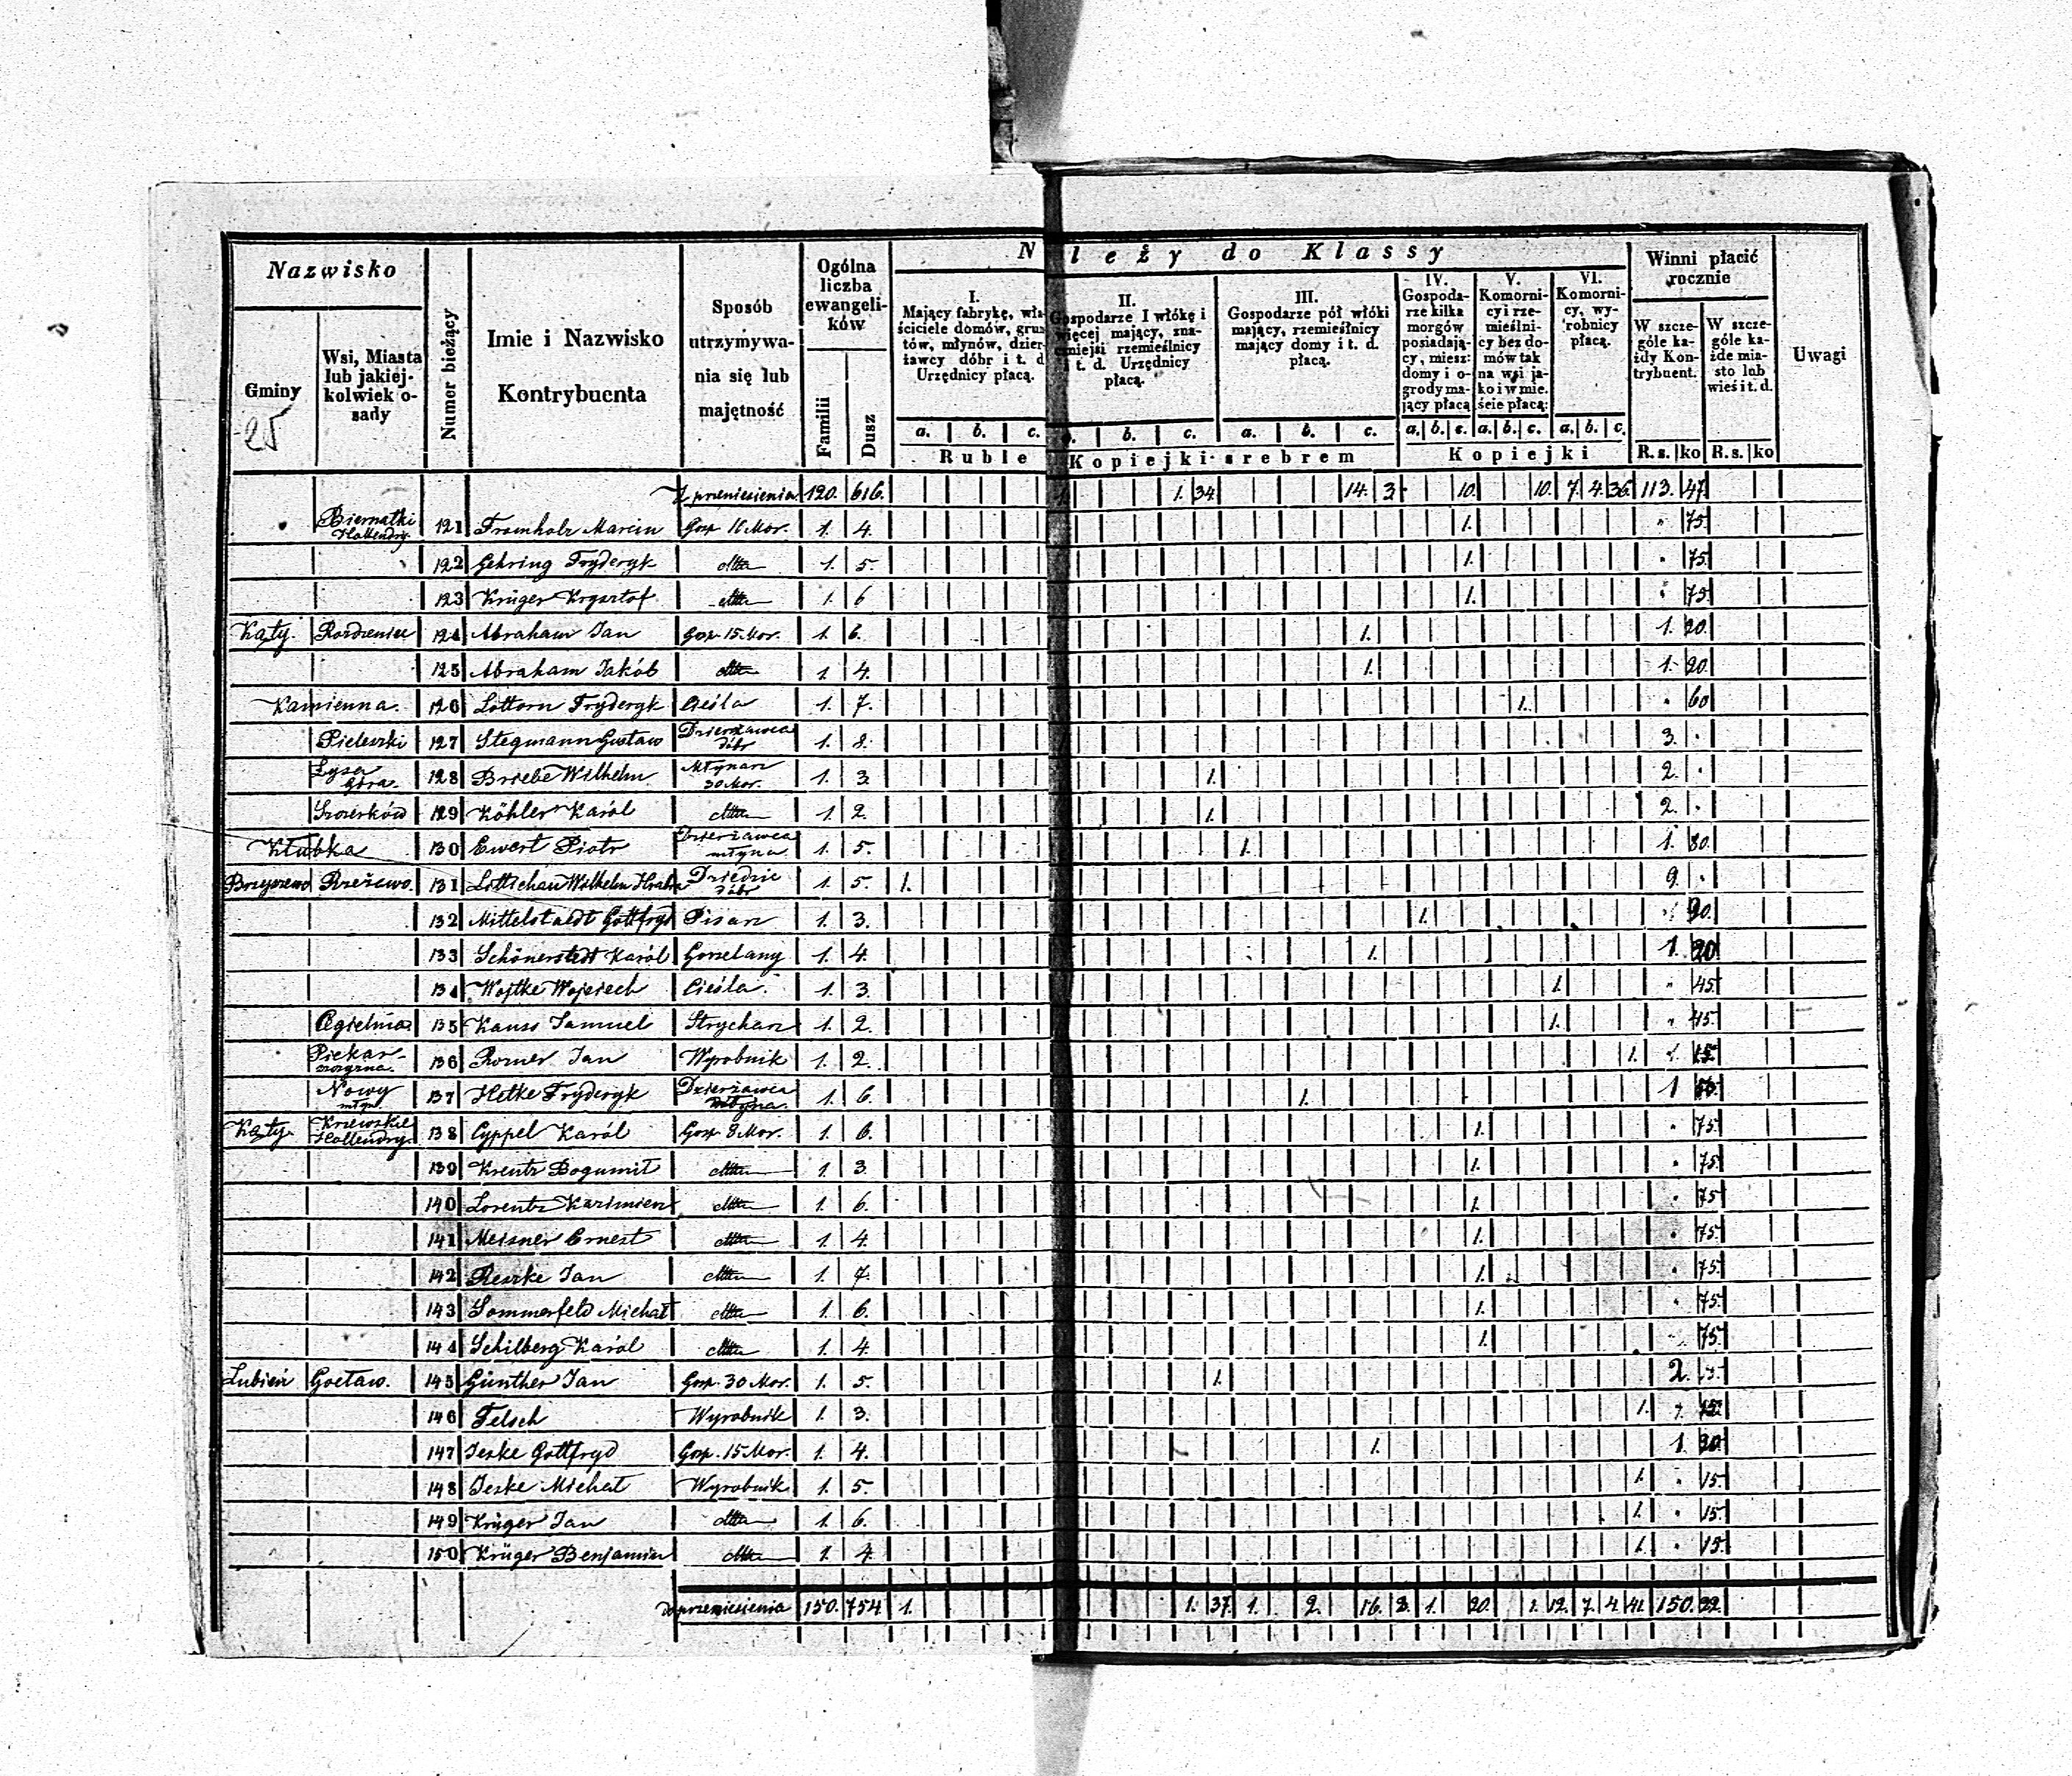 Nazwisko
Gminy
25
Wsi, Miasta lub jakiej-kolwiek o-sady
Numer bieżący
Imie i Nazwisko Kontrybuenta
Sposób utrzymywa-nia się lub majętność
Ogólna liczba ewangeli-ków
Familii
Dusz
N leży do Klassy
I. Mający fabrykę, wła-ściciele domów, grun-tów, młynów, dzier-żawcy dóbr i t. d. Urzędnicy płacą.
II. Gospodarze I włókę i więcej mający, zna-czniejsi rzemieślnicy i t. d. Urzędnicy płacą.
III. Gospodarze pół włóki mający, rzemieślnicy mający domy i t. d. płacą.
IV. Gospoda-rze kilka morgów posiadają-cy, miesz: domy i o-grody ma-jący płacą
V. Komorni-cy i rze-mieślni-cy bez do-mów tak na wsi ja-ko i w mie-ście płacą:
VI. Komorni-cy, wy-robnicy płacą.
Winni płacić rocznie
W szcze-góle ka-żdy Kon-trybuent.
W szcze-góle ka-żde mia-sto lub wieś i t. d.
Uwagi
a. b. c. b. c. a. b. c. a. b. c. a. b. c. a. b. c.
Ruble Kopiejki srebrem Kopiejki R.s. ko R.s. ko
Z przeniesienia 120. 616. 1. 34 14. 3 10. 10. 7. 4. 36. 113. 47.
Biernatki Hollendry 121 Fromholz Marcin Gosp 11 Mor. 1. 4. 1. " 75.
122 Gehring Fryderyk ditto 1. 5. 1. " 75.
123 Krüger Krysztof ditto 1. 6 1. " 75.
Kąty. Rozdzeniec 124 Abraham Jan Gosp. 15 Mor. 1. 6. 1. 1. 20.
125 Abraham Jakób ditto 1. 4. 1. 1. 20.
Kamienna. 126 Lottorn Fryderyk Cieśla 1. 7. 1. " 60
Pieleszki 127 Stegmann Gustaw Dzierżawca dóbr 1. 8. 3. "
Łysa Góra 128 Briebe Wilhelm Młynarz 30 Mor. 1. 3. 1. 2. "
Szczerków 129 Köhler Karól ditto 1. 2. 1. 2. "
Kłubka 130 Ewert Piotr Dzierżawca młyna 1. 5. 1. 1. 80.
Brzyszewo Rzeżewo. 131 Lüttichau Wilhelm Hrabia Dziedzic dóbr 1. 5. 1. 9. "
132 Mittelstaedt Gottfryd Pisarz 1. 3. 1. " 90.
133 Schönerstedt Karól Gorzelany 1. 4. 1. 1. 20
134 Wojtke Wojciech Cieśla. 1. 3. 1. " 45.
Cegielnia 135 Kauss Samuel Strycharz 1. 2. 1. " 45.
136 Rozner Jan Wyrobnik 1. 2. 1. " 15.
Nowy młyn 137 Hetke Fryderyk Dzierżawca młyna. 1. 6. 1. 1
Kąty. Krzewskie Hollendry 138 Cyppel Karól Gosp 8 Mor. 1. 6. 1. " 75.
139 Krentz Bogumił ditto 1. 3. 1. " 75.
140 Lorentz Kazimierz ditto 1. 6. 1. " 75
141 Meisner Ernest ditto 1. 4. 1. " 75.
142 Reszke Jan ditto 1. 7. 1. " 75.
143 Sommerfeld Michał ditto 1. 6. 1. " 75.
144 Schilberg Karól ditto 1. 4. 1. " 75.
Lubień Goetaw. 145 Günther Jan Gosp. 30 Mor. 1. 5. 1. 2.
146 Felsch Wyrobnik 1. 3. 1. " 15.
147 Jeske Gottfryd Gosp. 15 Mor. 1. 4. 1. 1. 20.
148 Jeske Michał Wyrobnik 1. 5. 1. " 15.
149 Krüger Jan ditto 1. 6. 1. " 15.
150 Krüger Benjamin ditto 1. 4. 1. " 15.
do przeniesienia 150. 754 1. 1. 37. 1. 2. 16. 3. 1. 20. 1. 12. 7. 4. 41. 150. 22.